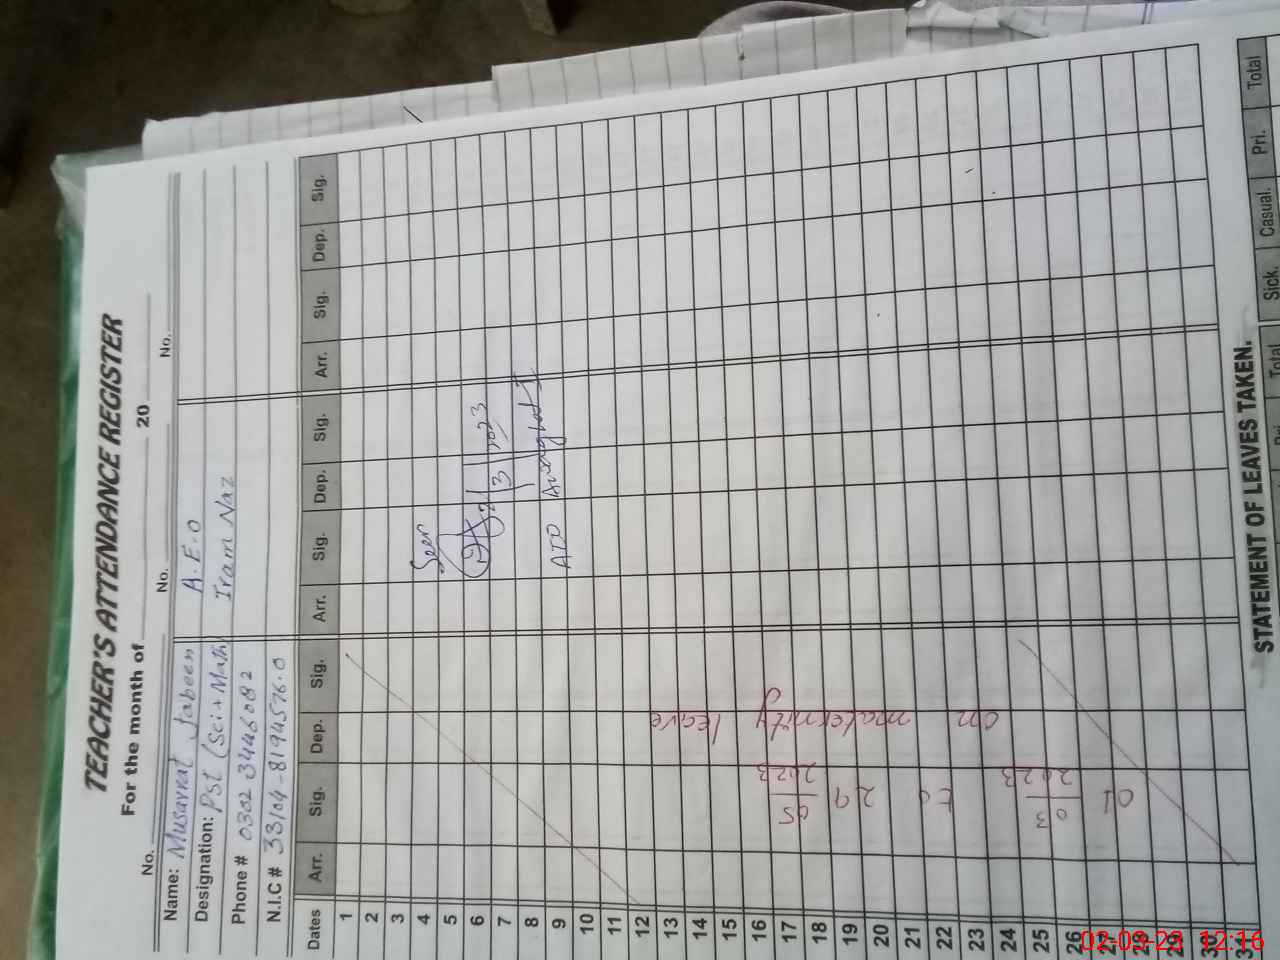 TEACHER'S ATTENDANCE REGISTER
For the month of 20
No. No. No.
Name: Musarrat Jabeen A.E.O
Designation: PST (Sci+Math) Iram Naz
Phone # 0302 3446082
N.I.C # 33104-8194576-0
Dates Arr. Sig. Dep. Sig. Arr. Sig. Dep. Sig. Arr. Sig. Dep. Sig.
1
2
3
4
5
6
7
8
9
10
11
12
13
14
15
16
17
18
19
20
21
22
23
24
25
26
27
28
29
30
31
Seen
3 2023
on maternity leave
01 03 2023 to 29 05 2023
STATEMENT OF LEAVES TAKEN.
Total Sick. Casual. Pri. Total
12:16